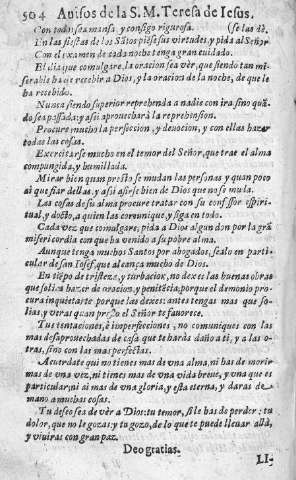 504 Auisos de la S. M. Teresa de Iesus.
Con todos sea mansa, y consigo rigurosa. (se las dè.
En las fiestas de los Sātos piēse sus virtudes, y pida al Señor
Con el examen de cada noche tenga gran cuidado.
El dia que comulgare, la oracion sea vèr, que siendo tan mi-
serable ha de recebir a Dios, y la oracion de la noche, de que le
ha recebido.
Nunca siendo superior reprehenda a nadie con ira, sino quā-
do sea passada; y assi aprouecharà la reprehension.
Procure mucho la perfeccion, y deuocion, y con ellas hazer
todas las cosas.
Exercitarse mucho en el temor del Señor, que trae el alma
compungida, y humillada.
Mirar bien quan presto se mudan las personas y quan poco
ai que fiar dellas, y assi asirse bien de Dios que no se muda.
Las cosas de su alma procure tratar con su confessor espiri-
tual, y docto, a quien las comunique, y siga en todo.
Cada vez que comulgare, pida a Dios algun don por la grā
misericordia con que ha venido a su pobre alma.
Aunque tenga muchos Santos por abogados, sealo en parti-
cular de san Iosef, que alcança mucho de Dios.
En tiēpo de tristeza, y turbacion, no dexes las buenas obras
que solias hazer de oracion, y penitēcia; porque el demonio pro-
cura inquietarte porque las dexes: antes tengas mas que so-
lias, y veras quan presto el Señor te fauorece.
Tus tentaciones, è imperfecciones, no comuniques con las
mas desaprouechadas de casa que te haràs daño a ti, y a las o-
tras, sino con las mas perfectas.
Acuerdate que no tienes mas de vna alma, ni has de morir
mas de vna vez, ni tienes mas de vna vida breue, y vna que es
particular; ni ai mas de vna gloria, y esta eterna, y daras de
mano a muchas cosas.
Tu desseo sea de vèr a Dios: tu temor, si le has de perder: tu
dolor, que no le gozas: y tu gozo, de lo que te puede lleuar allà,
y viuiràs con gran paz.
Deo gratias.
LI-